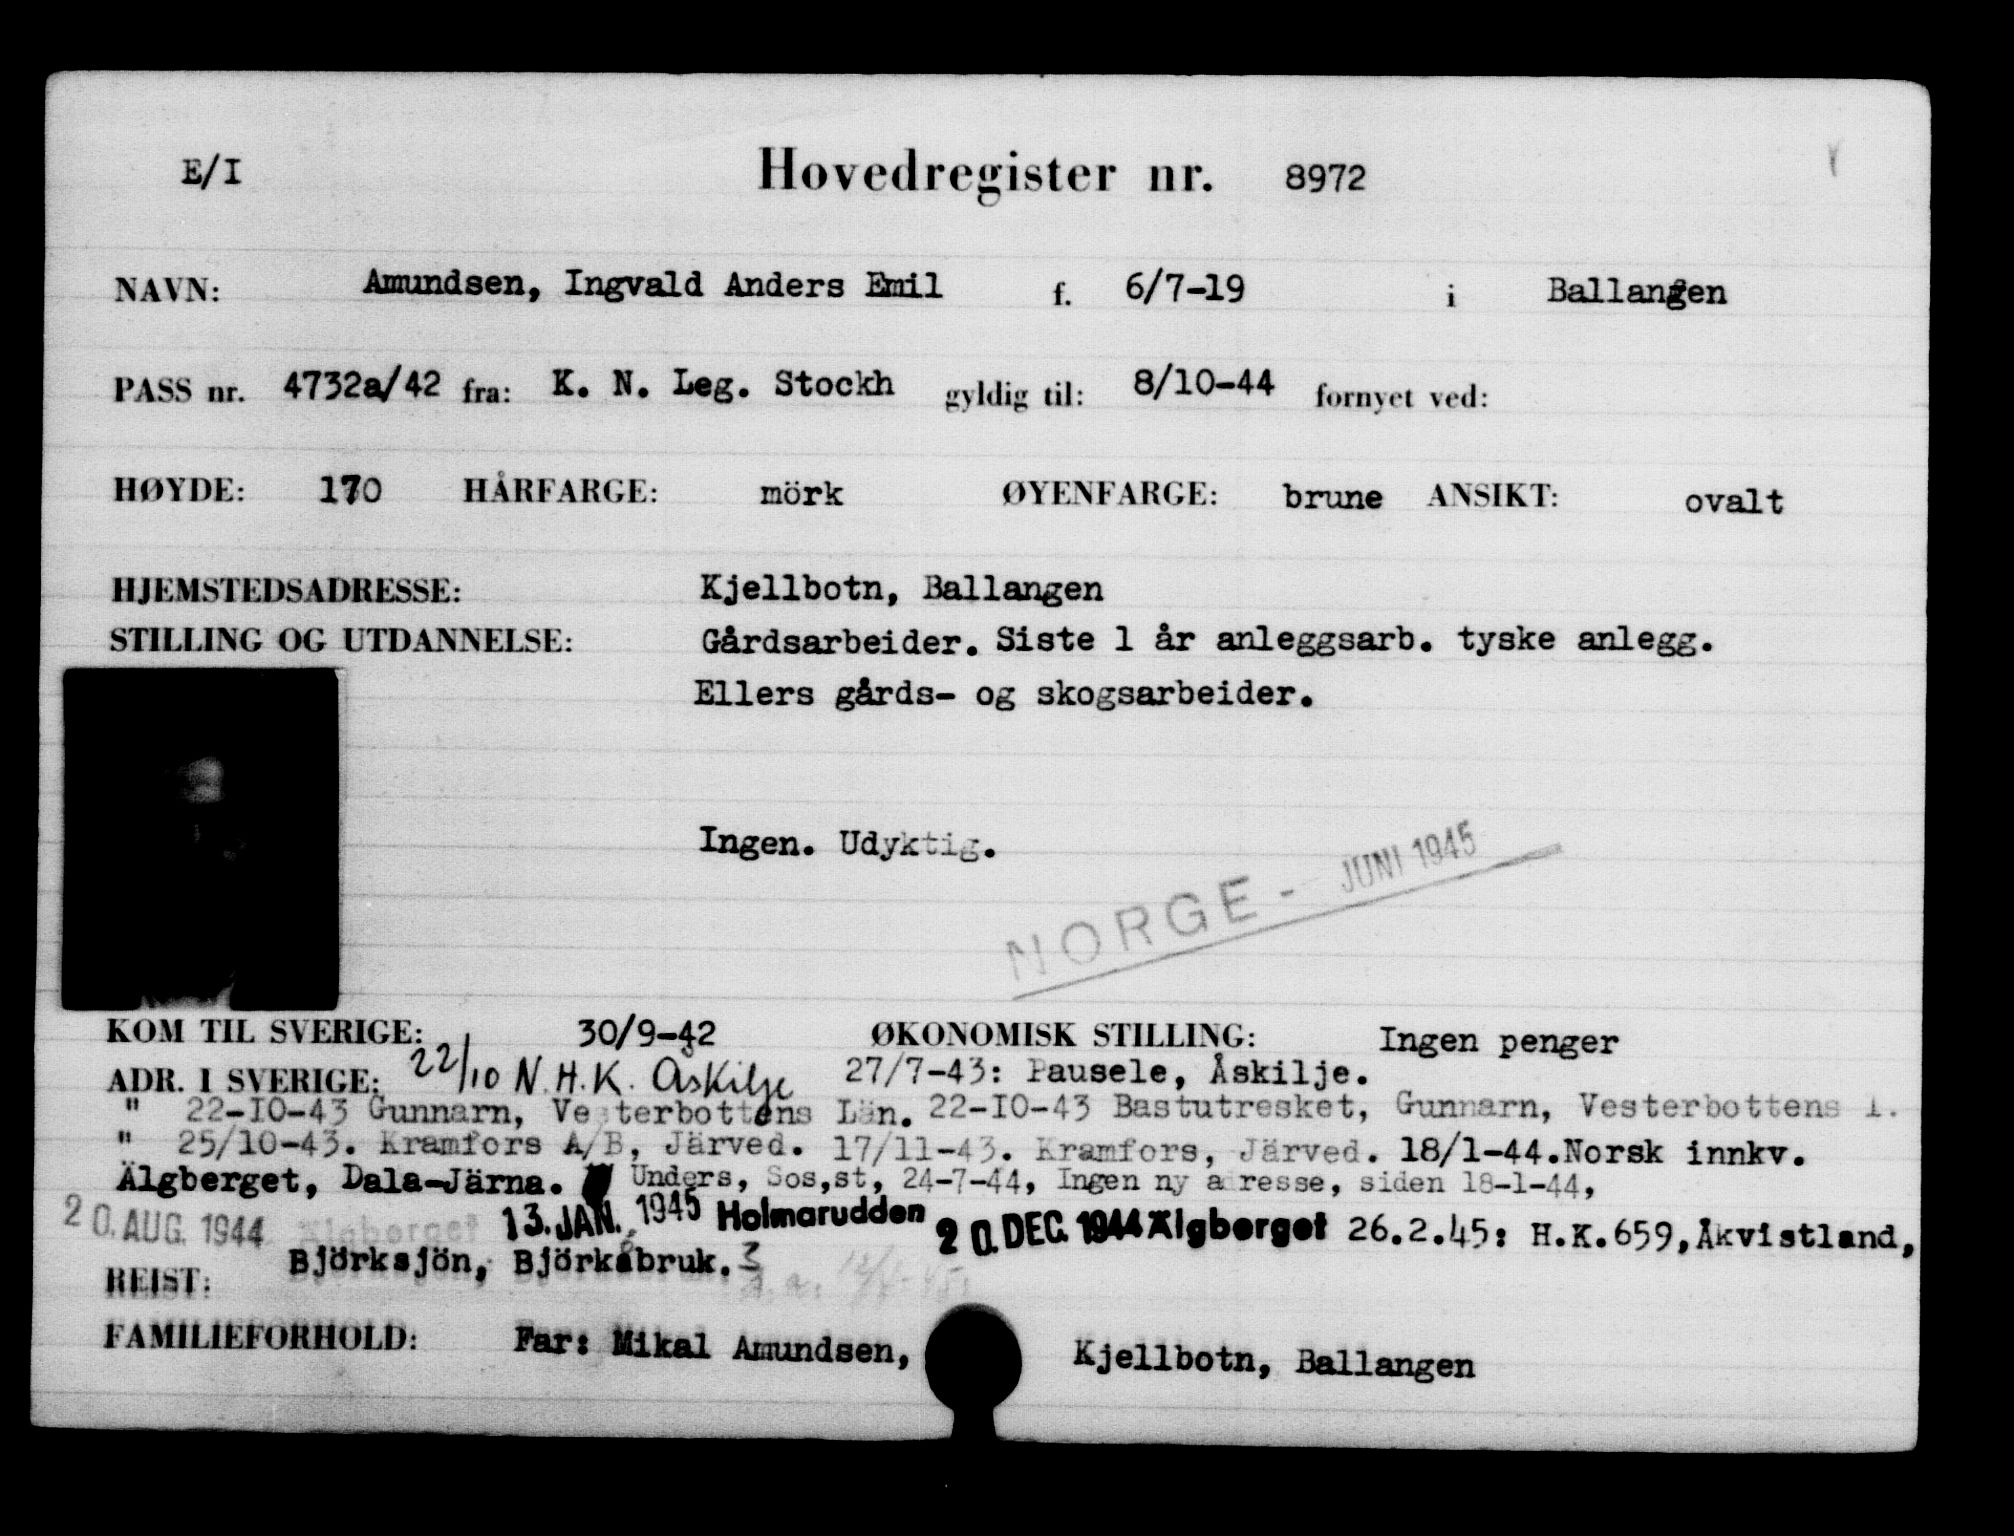 E/I Hovedregister nr. 8972
NAVN: Amundsen, Ingvald Anders Emil f. 6/7-19 i Ballangen
PASS nr. 4732a/42 fra: K. N. Leg. Stockh gyldig til: 8/10-44 fornyet ved:
HØYDE: 170 HÅRFARGE: mörk ØYENFARGE: brune ANSIKT: ovalt
HJEMSTEDSADRESSE: Kjellbotn, Ballangen
STILLING OG UTDANNELSE: Gårdsarbeider. Siste 1 år anleggsarb. tyske anlegg.
Ellers gårds- og skogsarbeider.
Ingen. Udyktig.
NORGE - JUNI 1945
KOM TIL SVERIGE: 30/9-42 ØKONOMISK STILLING: Ingen penger
ADR. I SVERIGE: 22/10 N.H.K. Åskilje 27/7-43: Pausele, Åskilje.
" 22-I0-43 Gunnarn, Vesterbottens Län. 22-I0-43 Bastutresket, Gunnarn, Vesterbottens l.
" 25/10-43. Kramfors A/B, Järved. 17/11-43. Kramfors, Järved. 18/1-44.Norsk innkv.
Älgberget, Dala-Järna. Unders, Sos,st, 24-7-44, Ingen ny adresse, siden 18-1-44,
20. AUG. 1944 Älgberget 13. JAN. 1945 Holmarudden 20. DEC. 1944 Älgberget 26.2.45: H.K.659,Åkvistland,
Björksjön, Björkåbruk.
REIST:
FAMILIEFORHOLD: Far: Mikal Amundsen, Kjellbotn, Ballangen